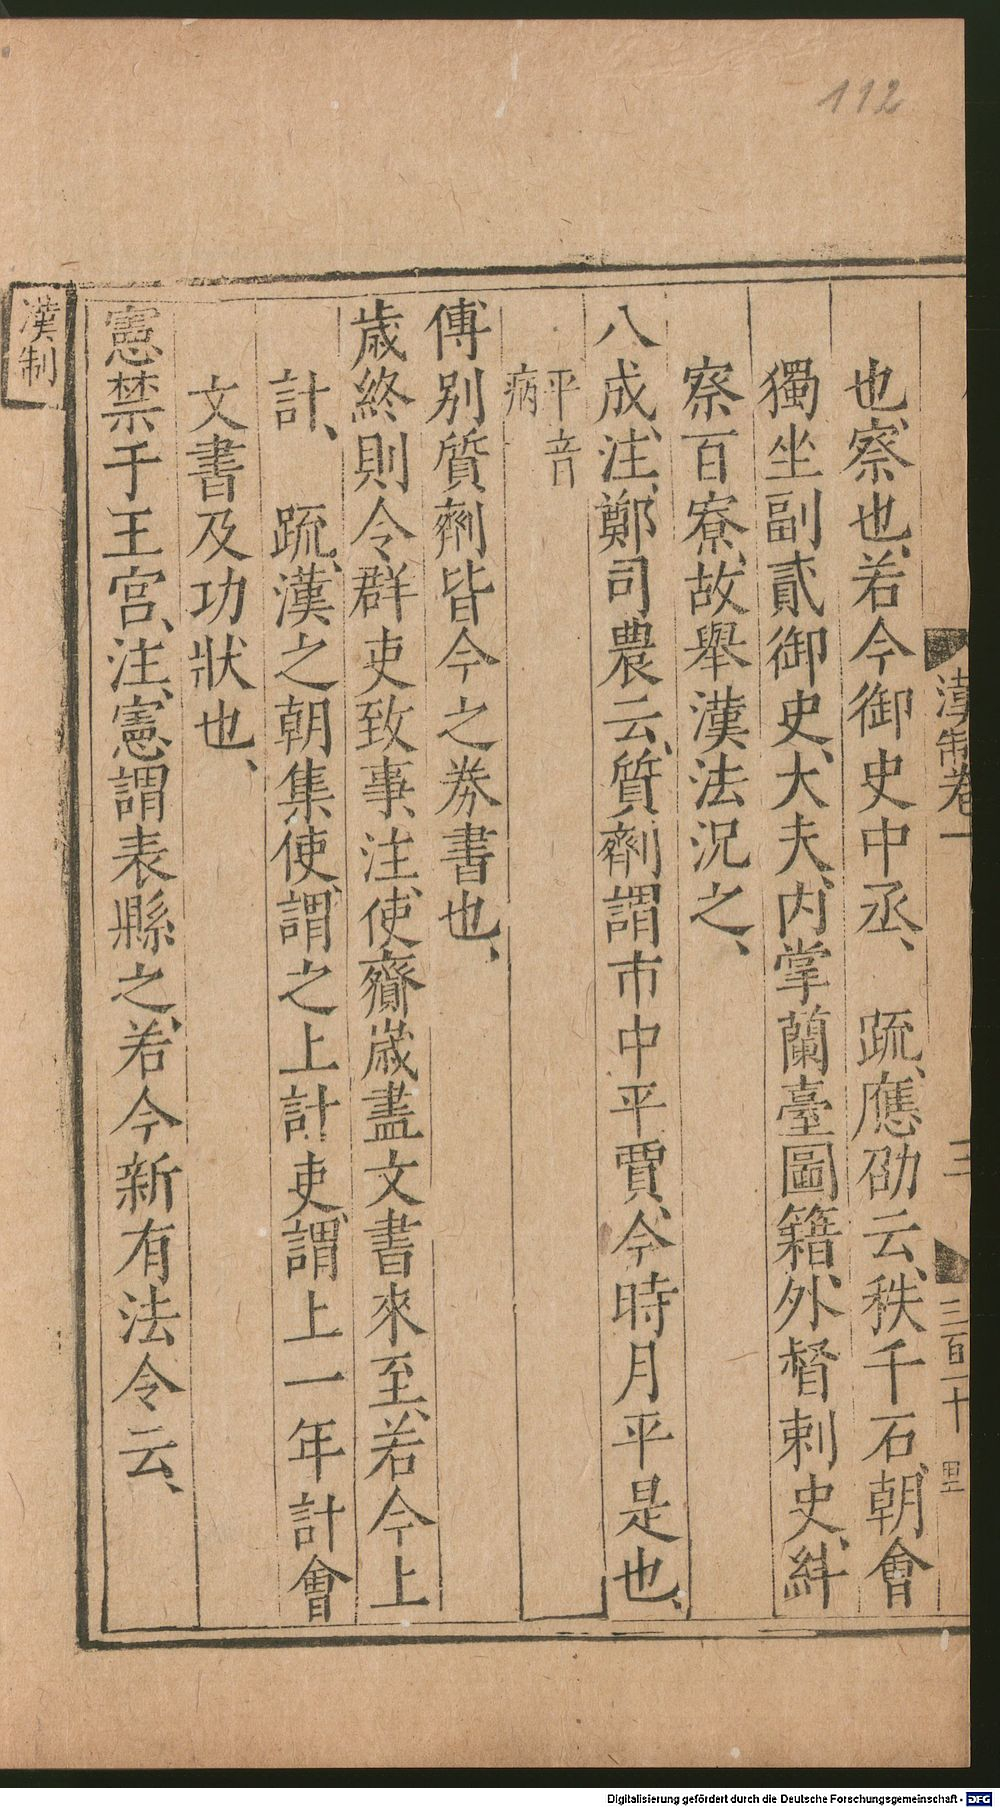 112
漢制卷一
三
三百一十
也、察也、若今御史中丞、 疏、應劭云、秩千石、朝會
獨坐副貳御史、大夫、内掌蘭臺圖籍、外督刺史、糾
察百寮、故舉漢法況之、
八成、注、鄭司農云、質劑謂市中平賈、今時月平是也、
平音
病
傅别質劑皆今之券書也、
歲終則令群吏致事、注、使齎歲盡文書來至、若今上
計、 疏、漢之朝集使、謂之上計吏、謂上一年計會
文書及功狀也、
憲禁于王宫、注、憲謂表縣之、若今新有法令云、
漢制
Digitalisierung gefördert durch die Deutsche Forschungsgemeinschaft - DFG